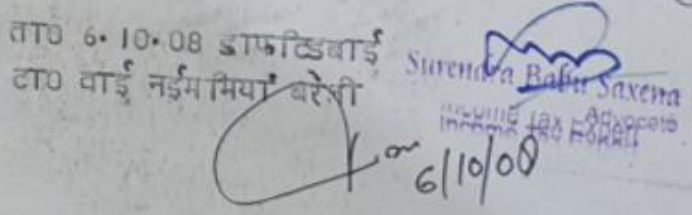 ता0 6.10.08 डाफटिडबाई
टा0 वाई नईम मियाँ बरेली
Surendra Babu Saxena
Income Tax Advocate
6/10/08